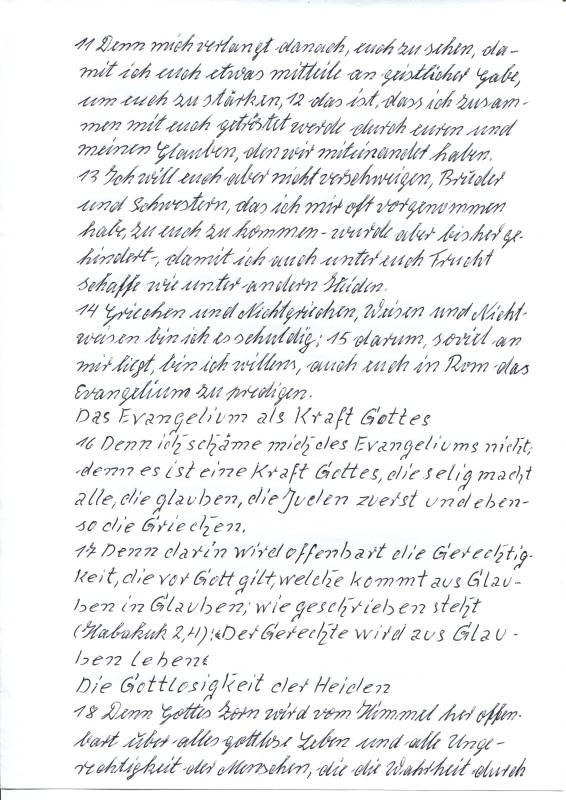 11 Denn mich verlangt danach, euch zu sehen, da-
mit ich euch etwas mitteile an geistlicher Gabe,
um euch zu stärken, 12 das ist, dass ich zusam-
men mit euch getröstet werde durch euren und
meinen Glauben, den wir miteinander haben.
13 Ich will euch aber nicht verschweigen, Brüder
und Schwestern, das ich mir oft vorgenommen
habe, zu euch zu kommen - wurde aber bisher ge-
hindert -, damit ich auch unter euch Frucht
schaffe wie unter andern Heiden.
14 Griechen und Nichtgriechen, Weisen und Nicht-
weisen bin ich es schuldig; 15 darum, soviel an
mir liegt, bin ich willens, auch euch in Rom das
Evangelium zu predigen.
Das Evangelium als Kraft Gottes
16 Denn ich schäme mich des Evangeliums nicht;
denn es ist eine Kraft Gottes, die selig macht
alle, die glauben, die Juden zuerst und eben-
so die Griechen.
17 Denn darin wird offenbart die Gerechtig-
keit, die vor Gott gilt, welche kommt aus Glau-
ben in Glauben; wie geschrieben steht
(Habakuk 2,4): «Der Gerechte wird aus Glau-
ben leben«
Die Gottlosigkeit der Heiden
18 Denn Gottes Zorn wird vom Himmel her offen-
bart über alles gottlose Leben und alle Unge-
rechtigkeit der Menschen, die die Wahrheit durch